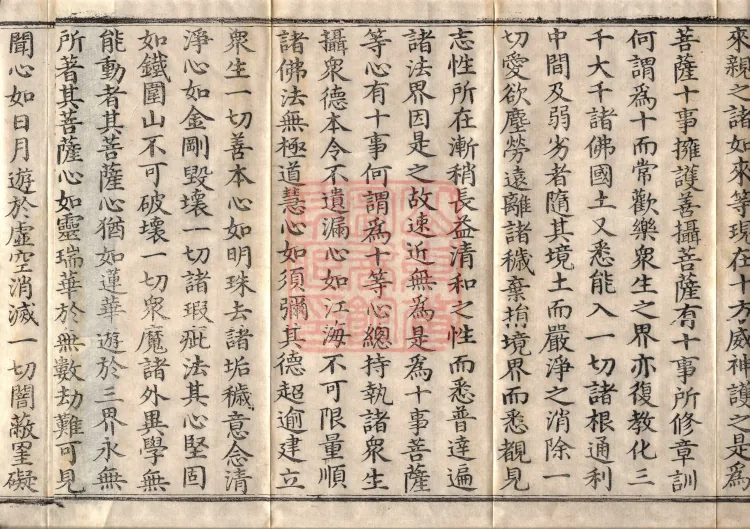 來親之諸如來等現在十方威神護之是爲
菩薩十事擁護善攝菩薩有十事所修章訓
何謂爲十而常歡樂衆生之界亦復教化三
千大千諸佛國土又悉能入一切諸根通利
中間及弱劣者隨其境土而嚴淨之消除一
切愛欲塵勞遠離諸穢棄捐境界而悉觀見
志性所在漸稍長益清和之性而悉普達遍
諸法界因是之故速近無爲是爲十事菩薩
等心有十事何謂爲十等心總持執諸衆生
攝衆德本令不遺漏心如江海不可限量順
諸佛法無極道慧心如須彌其德超逾建立
衆生一切善本心如明珠去諸垢穢意念清
淨心如金剛毀壞一切諸瑕疵法其心堅固
如鐵圍山不可破壞一切衆魔諸外異學無
能動者其菩薩心猶如蓮華遊於三界永無
所著其菩薩心如靈瑞華於無數劫難可見
聞心如日月遊於虛空消滅一切闇蔽罣礙